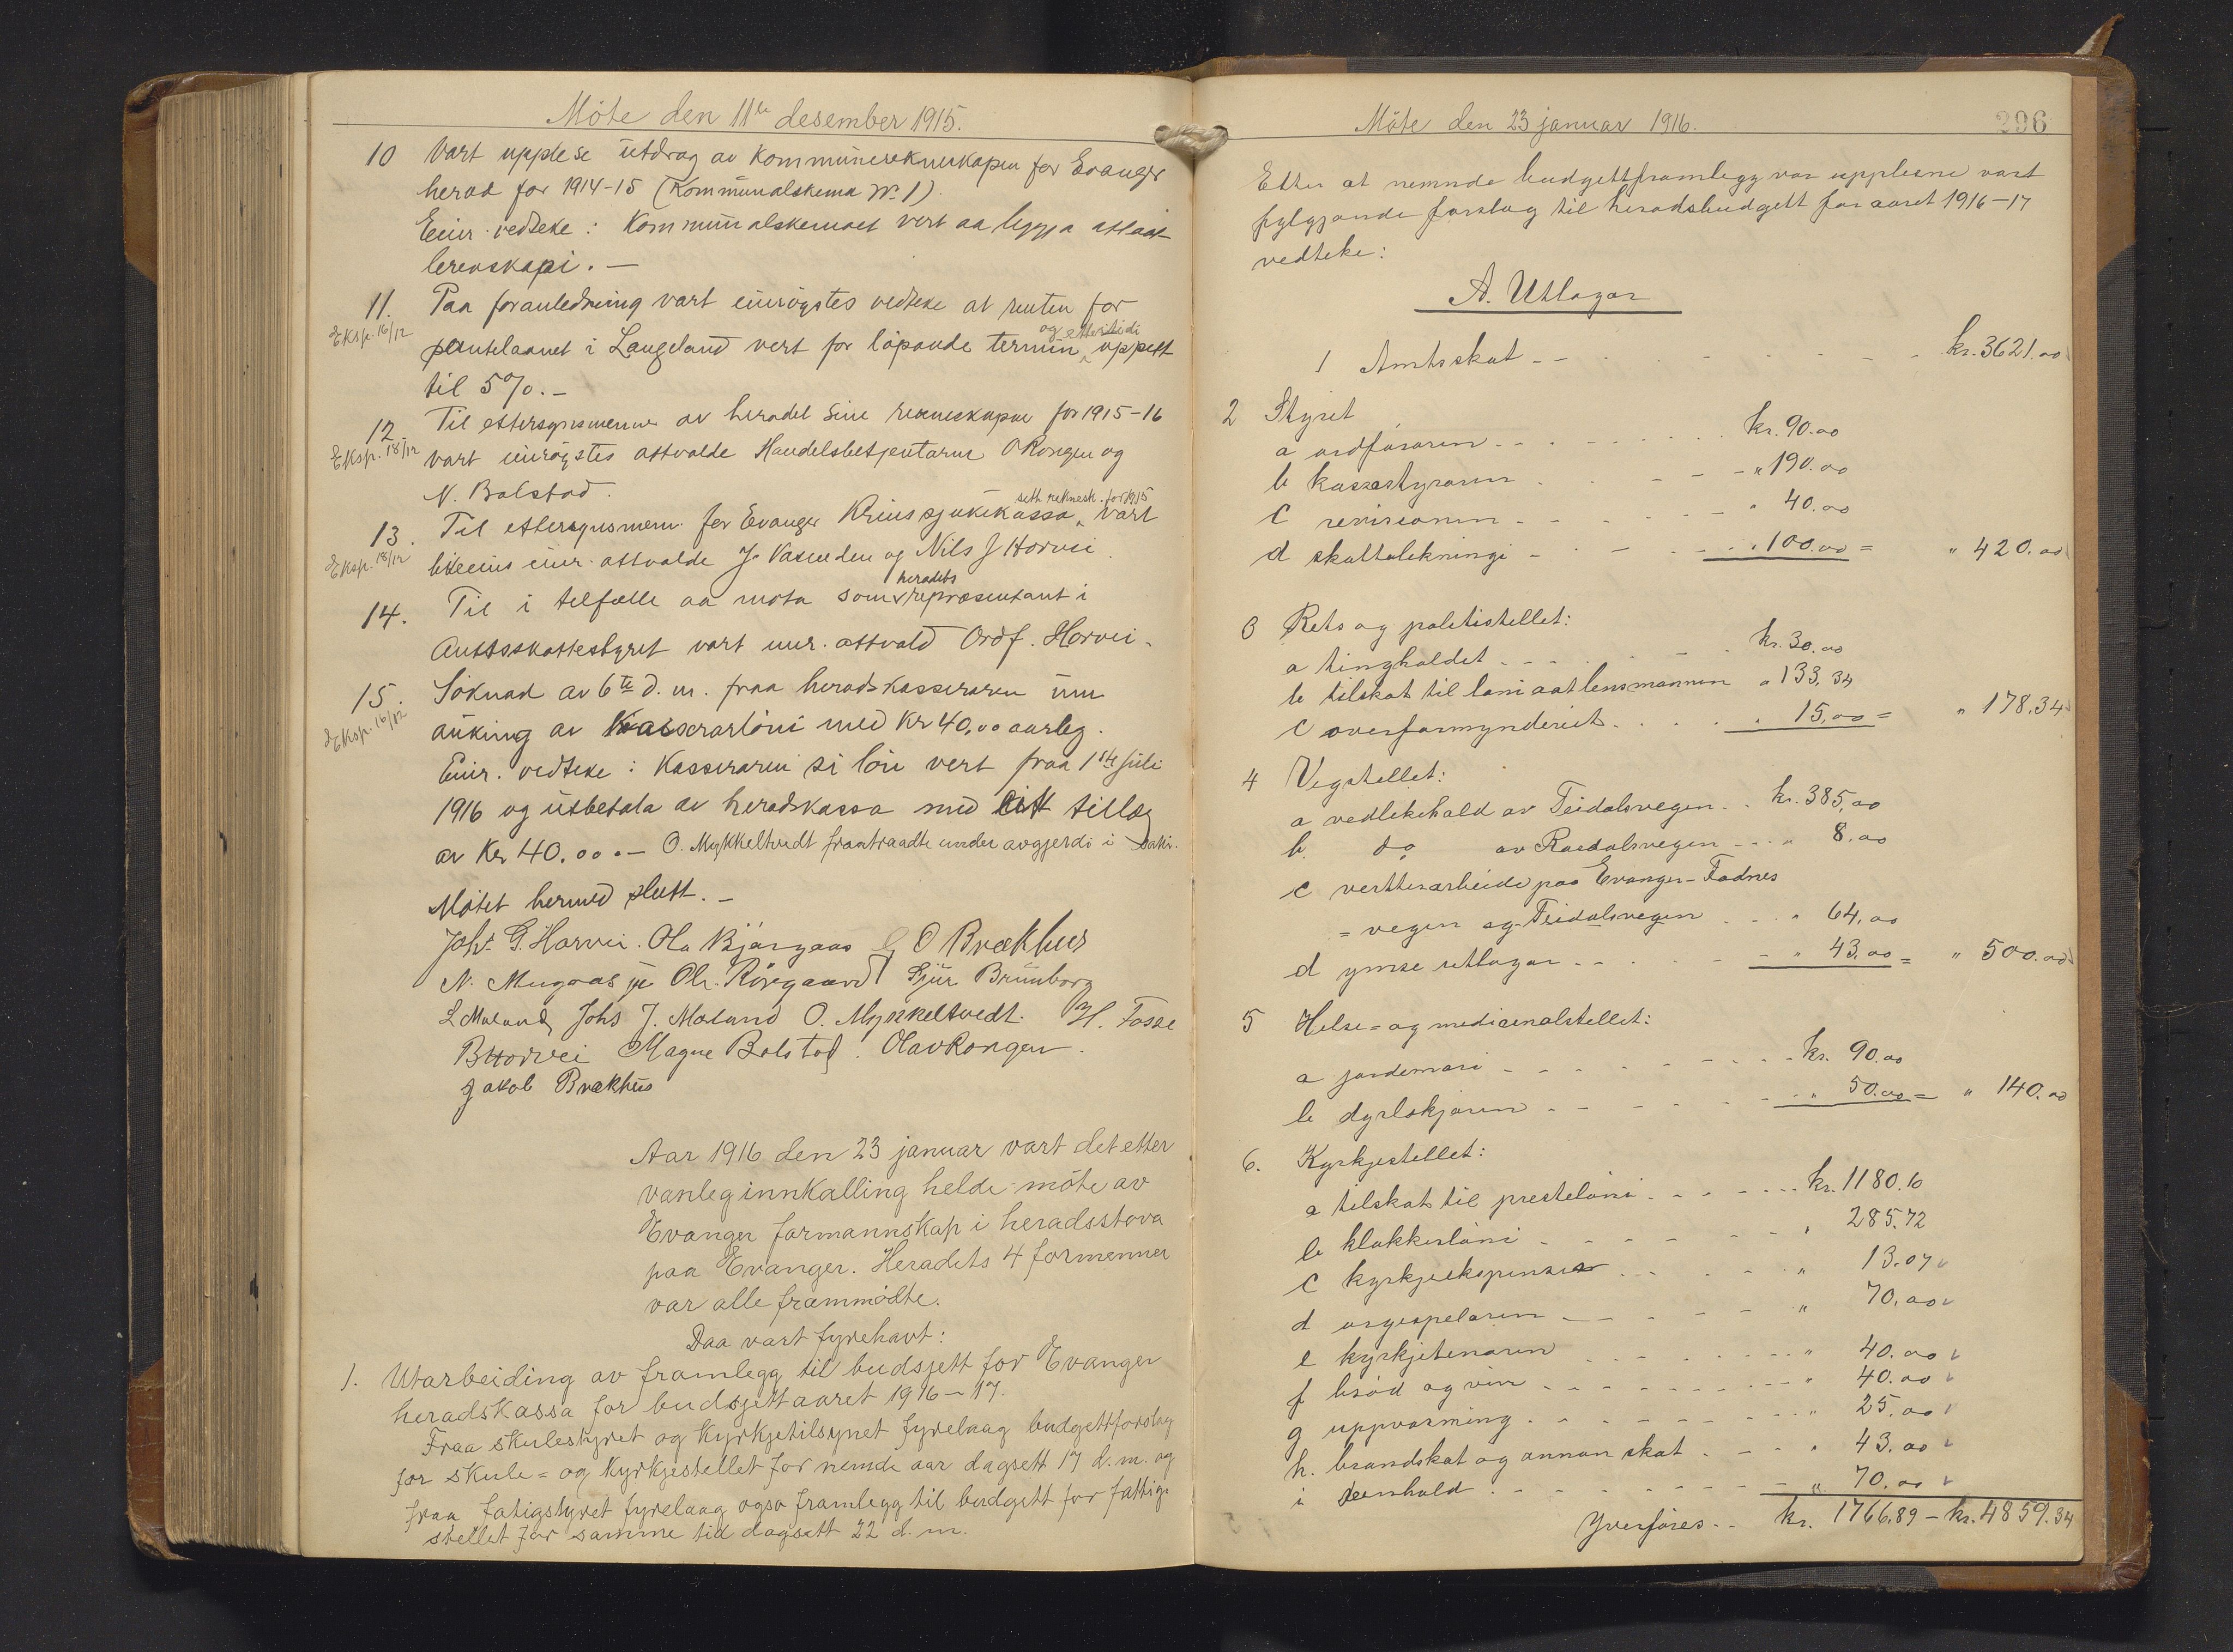 Möte den 11te desember 1915.
10 Vart upplese utdrag av kommunereknekapen for Evanger
herad for 1914-15 (Kommunalskema No 1).
Einr. vedteke: Kommunalskemaet vert aa leggja attaat
skapi. —
11. Paa foranledning vart einrøystes vedteke at renten for
Eksp. 16/12
pantelaanet i Langeland vert for löpande termin og ettertidi uppsett
til 5%. —
12. Til ettersynsmenner av heradet sine rekneskapar for 1915-16
Eksp. 18/12
vart einrøystes attvalde Handelsbetjentarne O Rongen og
N. Bolstad.
13. Til ettersynsmenn for Evanger Krinssjukekassa seth reknesk. for 1915 vart
Eksp. 18/12
likeeins einr. attvalde J. Vasenden og Nils J Horvei.
14. Til i tilfælle aa møta som heradets repræsentant i
Amtsskattestyret vart einr. attvald Ordf. Horvei.
15. Söknad av 6te d. m. fraa heradskasseraren um
Eksp. 16/12
auking av Kasserarlöni med Kr 40,00 aarleg.
Einr. vedteke: Kasseraren si lön vert fraa 1ste juli
1916 og utbetala av heradskassa med eitt tillæg
av Kr 40.00. — O. Mykkeltvedt fraatraadte under avgjerdi i saki.
Mötet hermed slutt. —
Johs. G. Horvei. Ola Bjørgaas G O Brækhus
N. Mugaas Ol. Rörgaard Sjur Brunborg
L Moland Johs J. Moland O. Mykkeltvedt. H. Fosse
B Horvei Magne Bolstad. Olav Rongen.
Jakob Brækhus
Aar 1916 den 23 januar vart det etter
vanleg innkalling helde möte av
Evanger formannskap i heradsstova
paa Evanger. Heradets 4 formenner
var alle frammödte.
Daa vart fyrehavt:
1. Utarbeiding av framlegg til budsjett for Evanger
heradskassa for budsjettaaret 1916-17.
Fraa skulestyret og kyrkjetilsynet fyrelaag budgettforslag
for skule- og kyrkjestellet for nemde aar dagsett 17 d. m. og
fraa fatigstyret fyrelaag ogso framlegg til budgett for fattig-
stellet for samme tid dagsett 22 d. m.
Möte den 23 januar 1916.
296
Etter at nemnde budgettframlegg var upplesne vart
fylgjande forslag til heradsbudgett for aaret 1916-17
vedteke:
A. Utlagar
1 Amtsskat - - kr. 3621.00
2 Styret
a ordföraren - - kr. 90.00
b kassastyraren - - " 190.00
c revisionen - - " 40.00
d skattalekningi - - " 100.00 = " 420.00
3 Rets og politistellet:
a tinghaldet - - kr. 30.00
b tilskot til löni aat lensmannen " 133.34
c overformynderiet - - " 15,00 = " 178.34
4 Vegstellet:
a vedlikehald av Teidalsvegen - - kr. 385,00
b. do av Rasdalsvegen - - " 8.00
c vertterarbeide paa Evanger-Fadnes
= vegen og Teidalsvegen - - " 64,00
d ymse utlagar - - " 43.00 = " 500.00
5 Helse- og medicinalstellet:
a jordemori - - kr. 90.00
b dyrlækjaren - - " 50.00 = " 140.00
6. Kyrkjestellet:
a tilskot til presteløni - - kr. 1180.10
b klokkerløni - - " 285.72
c kyrkjeekspenser - - " 13.07
d orgespelaren - - " 70.00
e kyrkjetenaren - - " 40.00
f bröd og vin - - " 40.00
g uppvarming - - " 25.00
h. brandskat og annan skat - - " 43.00
i reinhald - - " 70.00
Yverföres - - kr. 1766.89 - kr. 4859.34